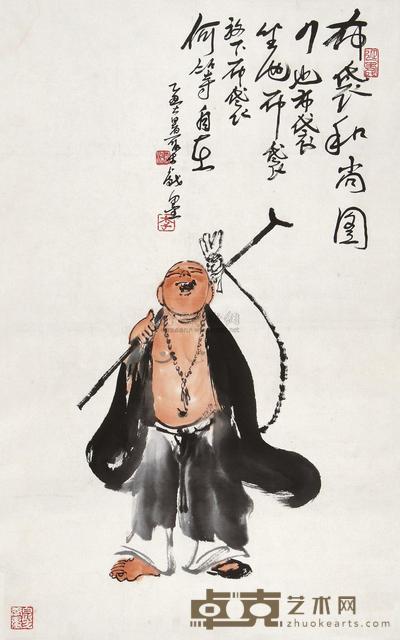 布袋和尚图
行也布袋
坐也布袋
放下布袋
何等自在
乙丑大暑
戏墨
卓克艺术网
zhuokearts.com